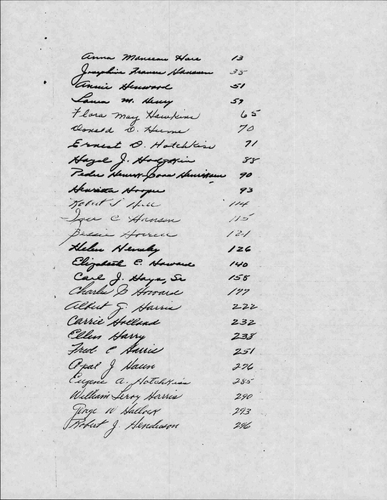 Anna Maureen Hare 13
Josephine Frances Hanson 35
Annie Henwood 51
Laura M. Henry 59
Flora May Hawkins 65
Donald D. Herne 70
Ernest D. Hotchkiss 71
Hazel J. Hodgkin 88
Peder Henrik Henriksen 90
Henrietta Hooper 93
Robert J. Hill 114
Iver C Hanson 115
Bessie 121
Helen Hensley 126
Elizabeth C. Howard 140
Carl J. Hays, Sr 155
Charles G Howard 177
Albert J. Harris 222
Carrie Holland 232
Ellen Harry 238
Fred C Harris 251
Opal J Haun 276
Eugene A. Hotchkiss 285
William Leroy Harris 290
W Hallock 293
Robert J Henderson 296